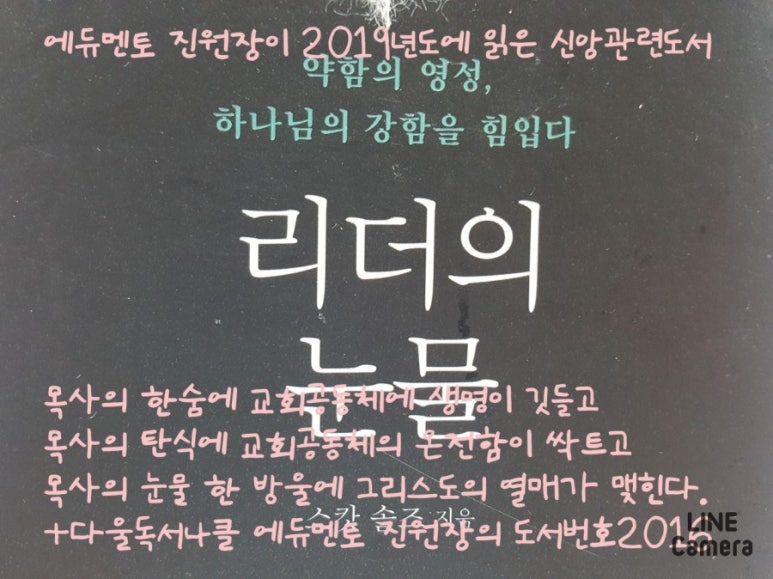 에듀멘토 진원장이 2019년도에 읽은 신앙관련도서
약함의 영성,
하나님의 강함을 힘입다
리더의
눈물
목사의 한숨에 교회공동체에 생명이 깃들고
목사의 탄식에 교회공동체의 온전함이 싹트고
목사의 눈물 한 방울에 그리스도의 열매가 맺힌다.
스캇 솔즈 지음
+다울독서나클 에듀멘토 진원장의 도서번호2015
LINE
Camera